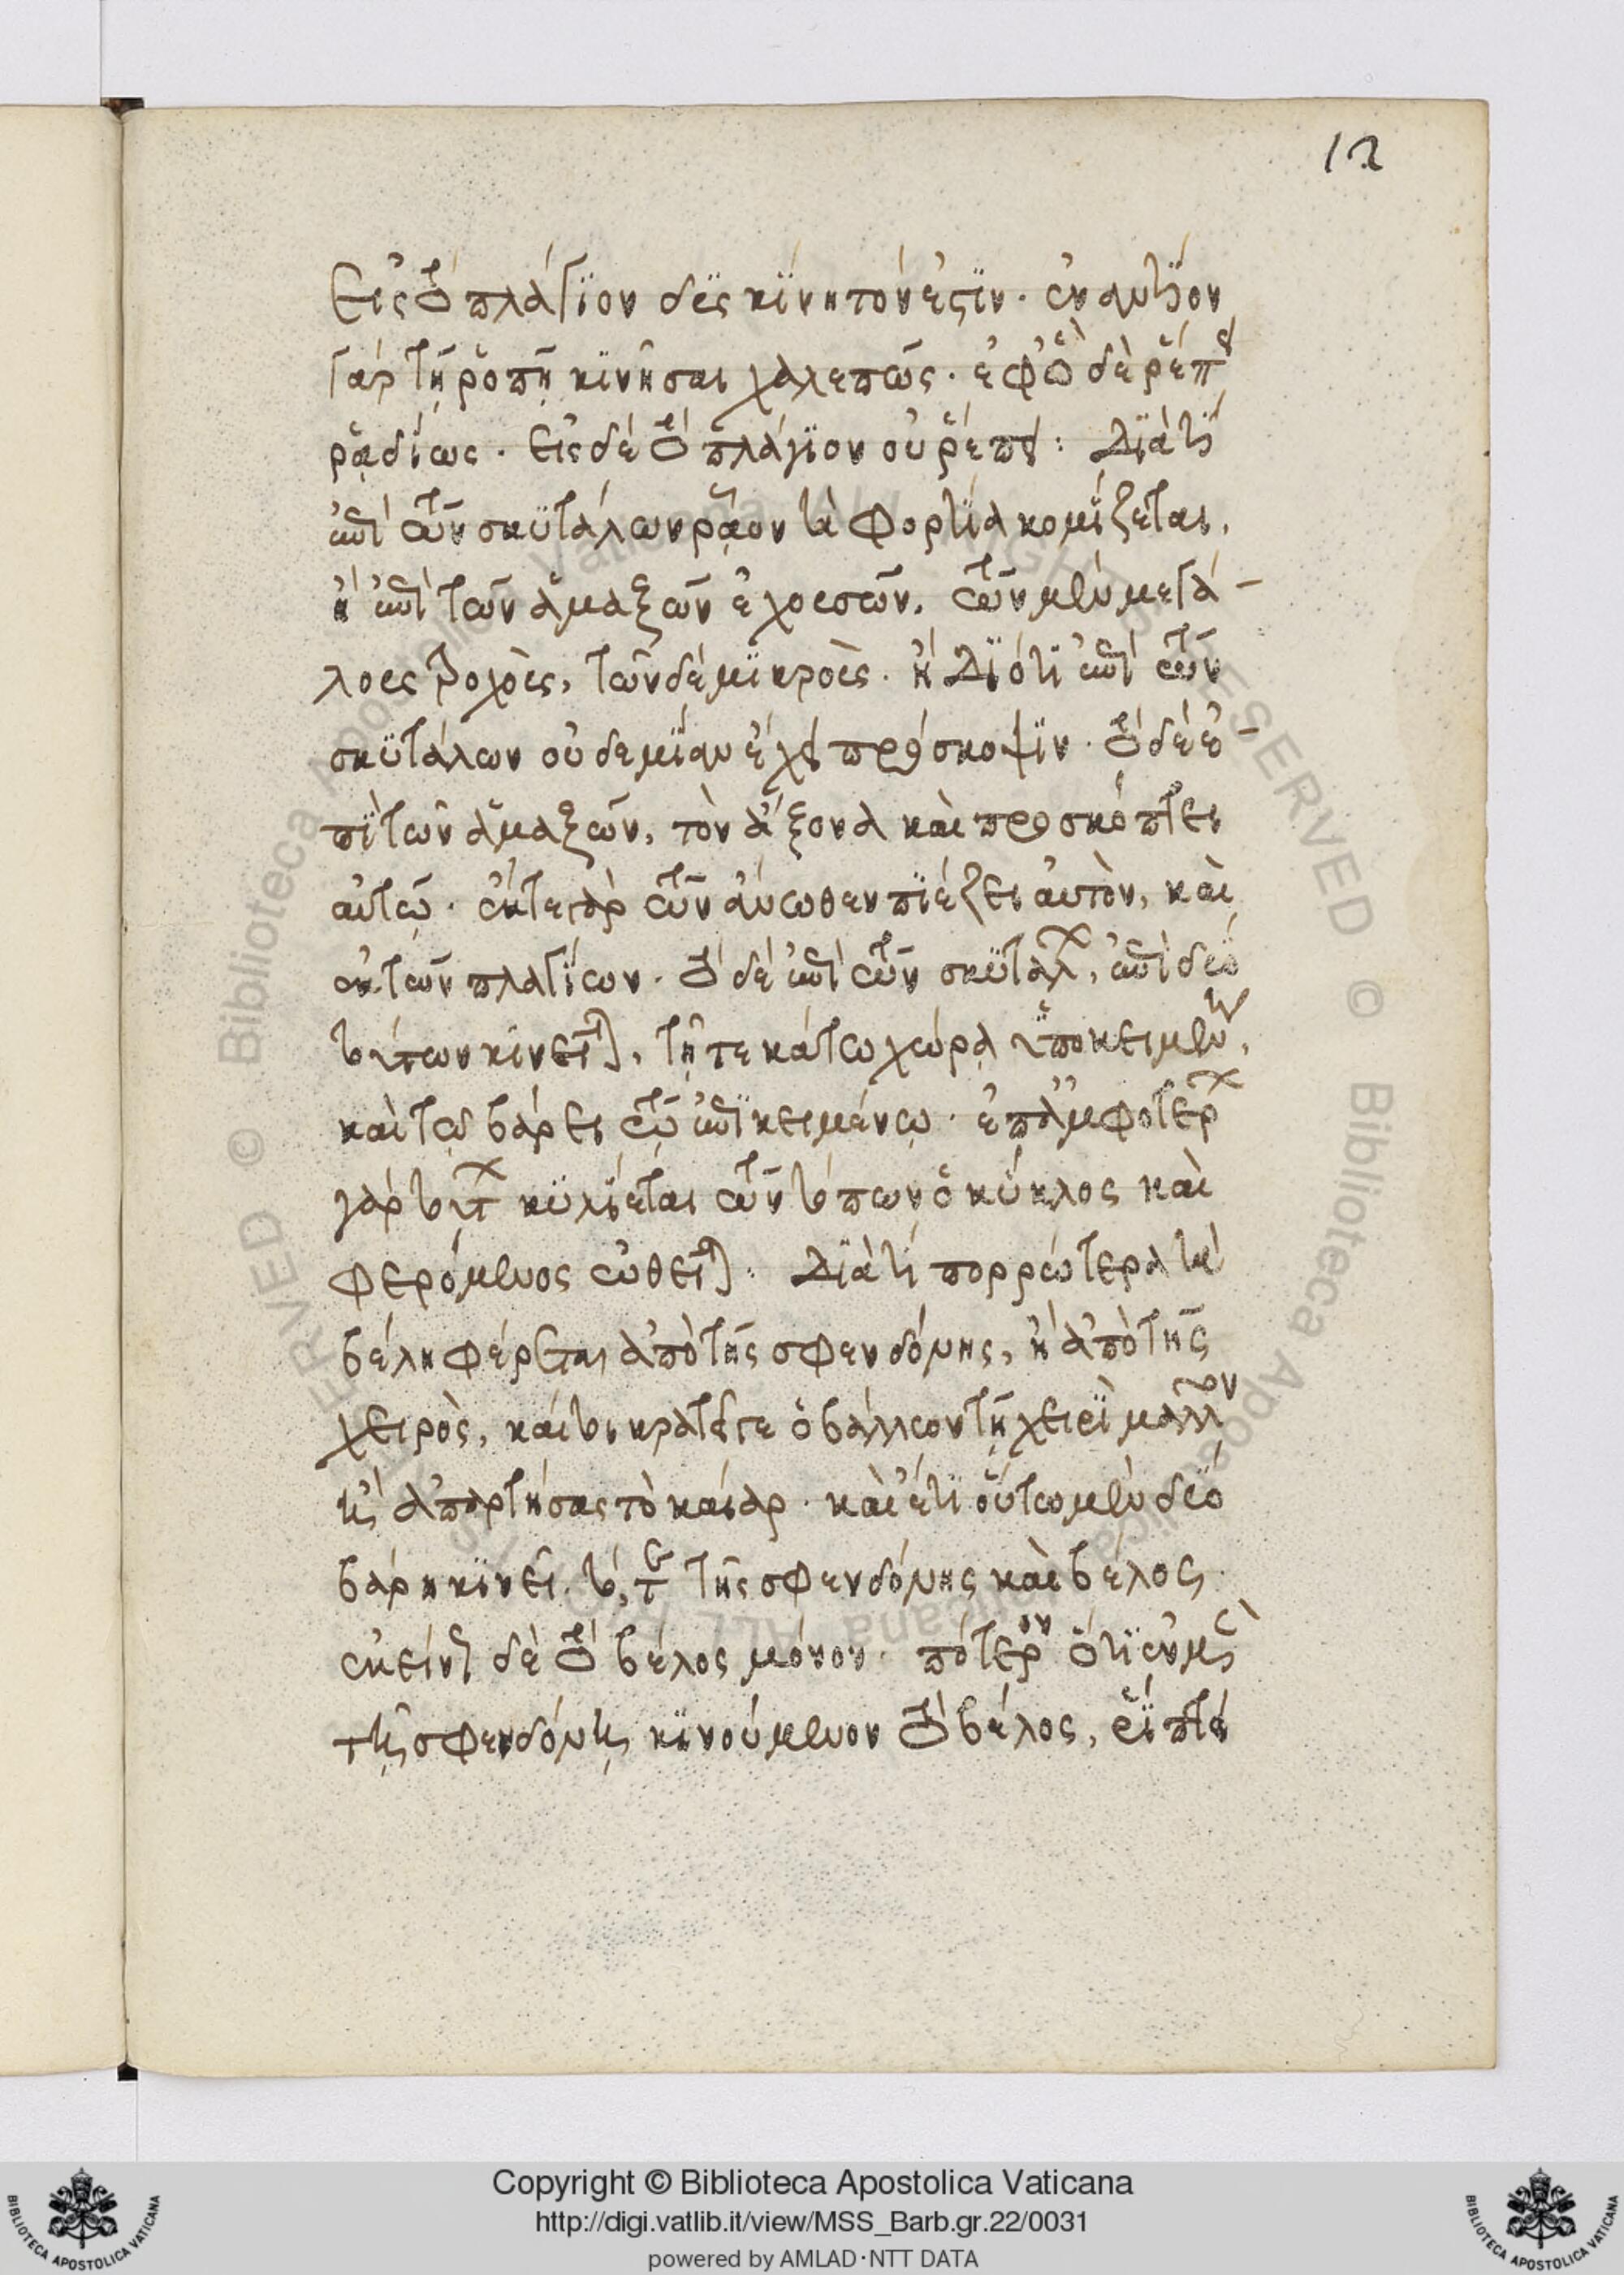 12
Εἰς τὸ πλάγϊον δϋσκίνητόν ἐστϊν· ἐναντίον
γὰρ τῇ ῥοπῇ κϊνῆσαι χαλεπῶς· ἐφ' ὃ δὲ ῥέπει
ῥᾳδίως· εἰς δὲ τὸ πλάγϊον οὐ ῥέπει: Δϊὰ τί
ἐπὶ τῶν σκϋτάλων ῥᾷον τὰ φορτία κομίζεται,
ἢ ἐπὶ τῶν ἁμαξῶν ἐχουσῶν. τῶν μὲν μεγά-
λους τροχοὺς, τῶν δὲ μϊκροὺς. ἢ Δϊότι ἐπὶ τῶν
σκϋτάλων οὐδεμίαν ἔχει πρόσκοψϊν· τὸ δὲ ἐ-
πὶ τῶν ἁμαξῶν, τὸν ἄξονα καὶ προσκόπτει
αὐτῷ· ἔκ τε γὰρ τῶν ἄνωθεν πϊέζει αὐτὸν, καὶ
ἐκ τῶν πλαγίων· τὸ δὲ ἐπὶ τῶν σκϋτάλων, ἐπὶ δύο
τούτων κινεῖται, τῇ τε κάτω χώρᾳ ὑποκειμένῃ,
καὶ τῷ βάρει τῷ ἐπϊκειμένῳ· ἐπ' ἀμφοτέρων
γὰρ τούτων κϋλίεται τῶν τόπων ὁ κύκλος καὶ
φερόμενος ὠθεῖται· Δϊὰ τί πορρώτερα τὰ
βέλη φέρεται ἀπὸ τῆς σφενδόνης, ἢ ἀπὸ τῆς
χειρὸς, καί τοι κρατεῖ τε ὁ βάλλων τῇ χειρὶ μᾶλλον
ἢ ἀπαρτήσας τὸ βάρος· καὶ ἔτι οὕτω μὲν δύο
βάρη κϊνεῖ. τό, τε τῆς σφενδόνης καὶ βέλος·
ἐκείνως δὲ τὸ βέλος μόνον· πότερον ὅτϊ ἐν μὲν
τῇ σφενδόνῃ κϊνούμενον τὸ βέλος, ῥίπτει
Copyright © Biblioteca Apostolica Vaticana
http://digi.vatlib.it/view/MSS_Barb.gr.22/0031
powered by AMLAD·NTT DATA